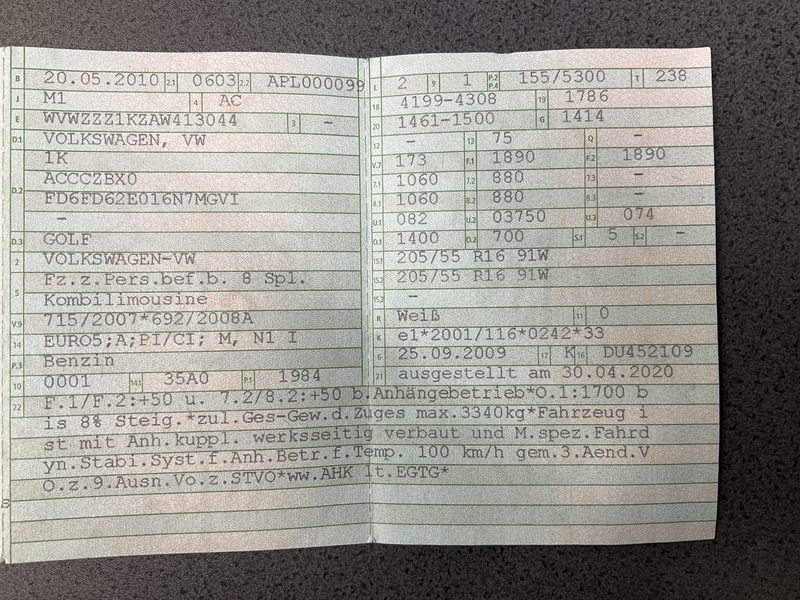 B 20.05.2010 2.1 0603 2.2 APL000099
J M1 4 AC
E WVWZZZ1KZAW413044 3 –
D.1 VOLKSWAGEN, VW
1K
D.2 ACCCZBX0
FD6FD62E016N7MGVI
–
D.3 GOLF
2 VOLKSWAGEN-VW
5 Fz.z.Pers.bef.b. 8 Spl.
Kombilimousine
V.9 715/2007*692/2008A
14 EURO5;A;PI/CI; M, N1 I
P.3 Benzin
10 0001 14.1 35A0 P.1 1984
L 2 9 1 P.2 P.4 155/5300 T 238
18 4199-4308 19 1786
20 1461-1500 G 1414
12 – 13 75 Q –
V.7 173 F.1 1890 F.2 1890
7.1 1060 7.2 880 7.3 –
8.1 1060 8.2 880 8.3 –
U.1 082 U.2 03750 U.3 074
O.1 1400 O.2 700 S.1 5 S.2 –
15.1 205/55 R16 91W
15.2 205/55 R16 91W
15.3 –
R Weiß 11 0
K e1*2001/116*0242*33
6 25.09.2009 17 K 16 DU452109
21 ausgestellt am 30.04.2020
22 F.1/F.2:+50 u. 7.2/8.2:+50 b.Anhängebetrieb*O.1:1700 b
is 8% Steig.*zul.Ges-Gew.d.Zuges max.3340kg*Fahrzeug i
st mit Anh.kuppl. werksseitig verbaut und M.spez.Fahrd
yn.Stabi.Syst.f.Anh.Betr.f.Temp. 100 km/h gem.3.Aend.V
O.z.9.Ausn.Vo.z.STVO*ww.AHK lt.EGTG*
B